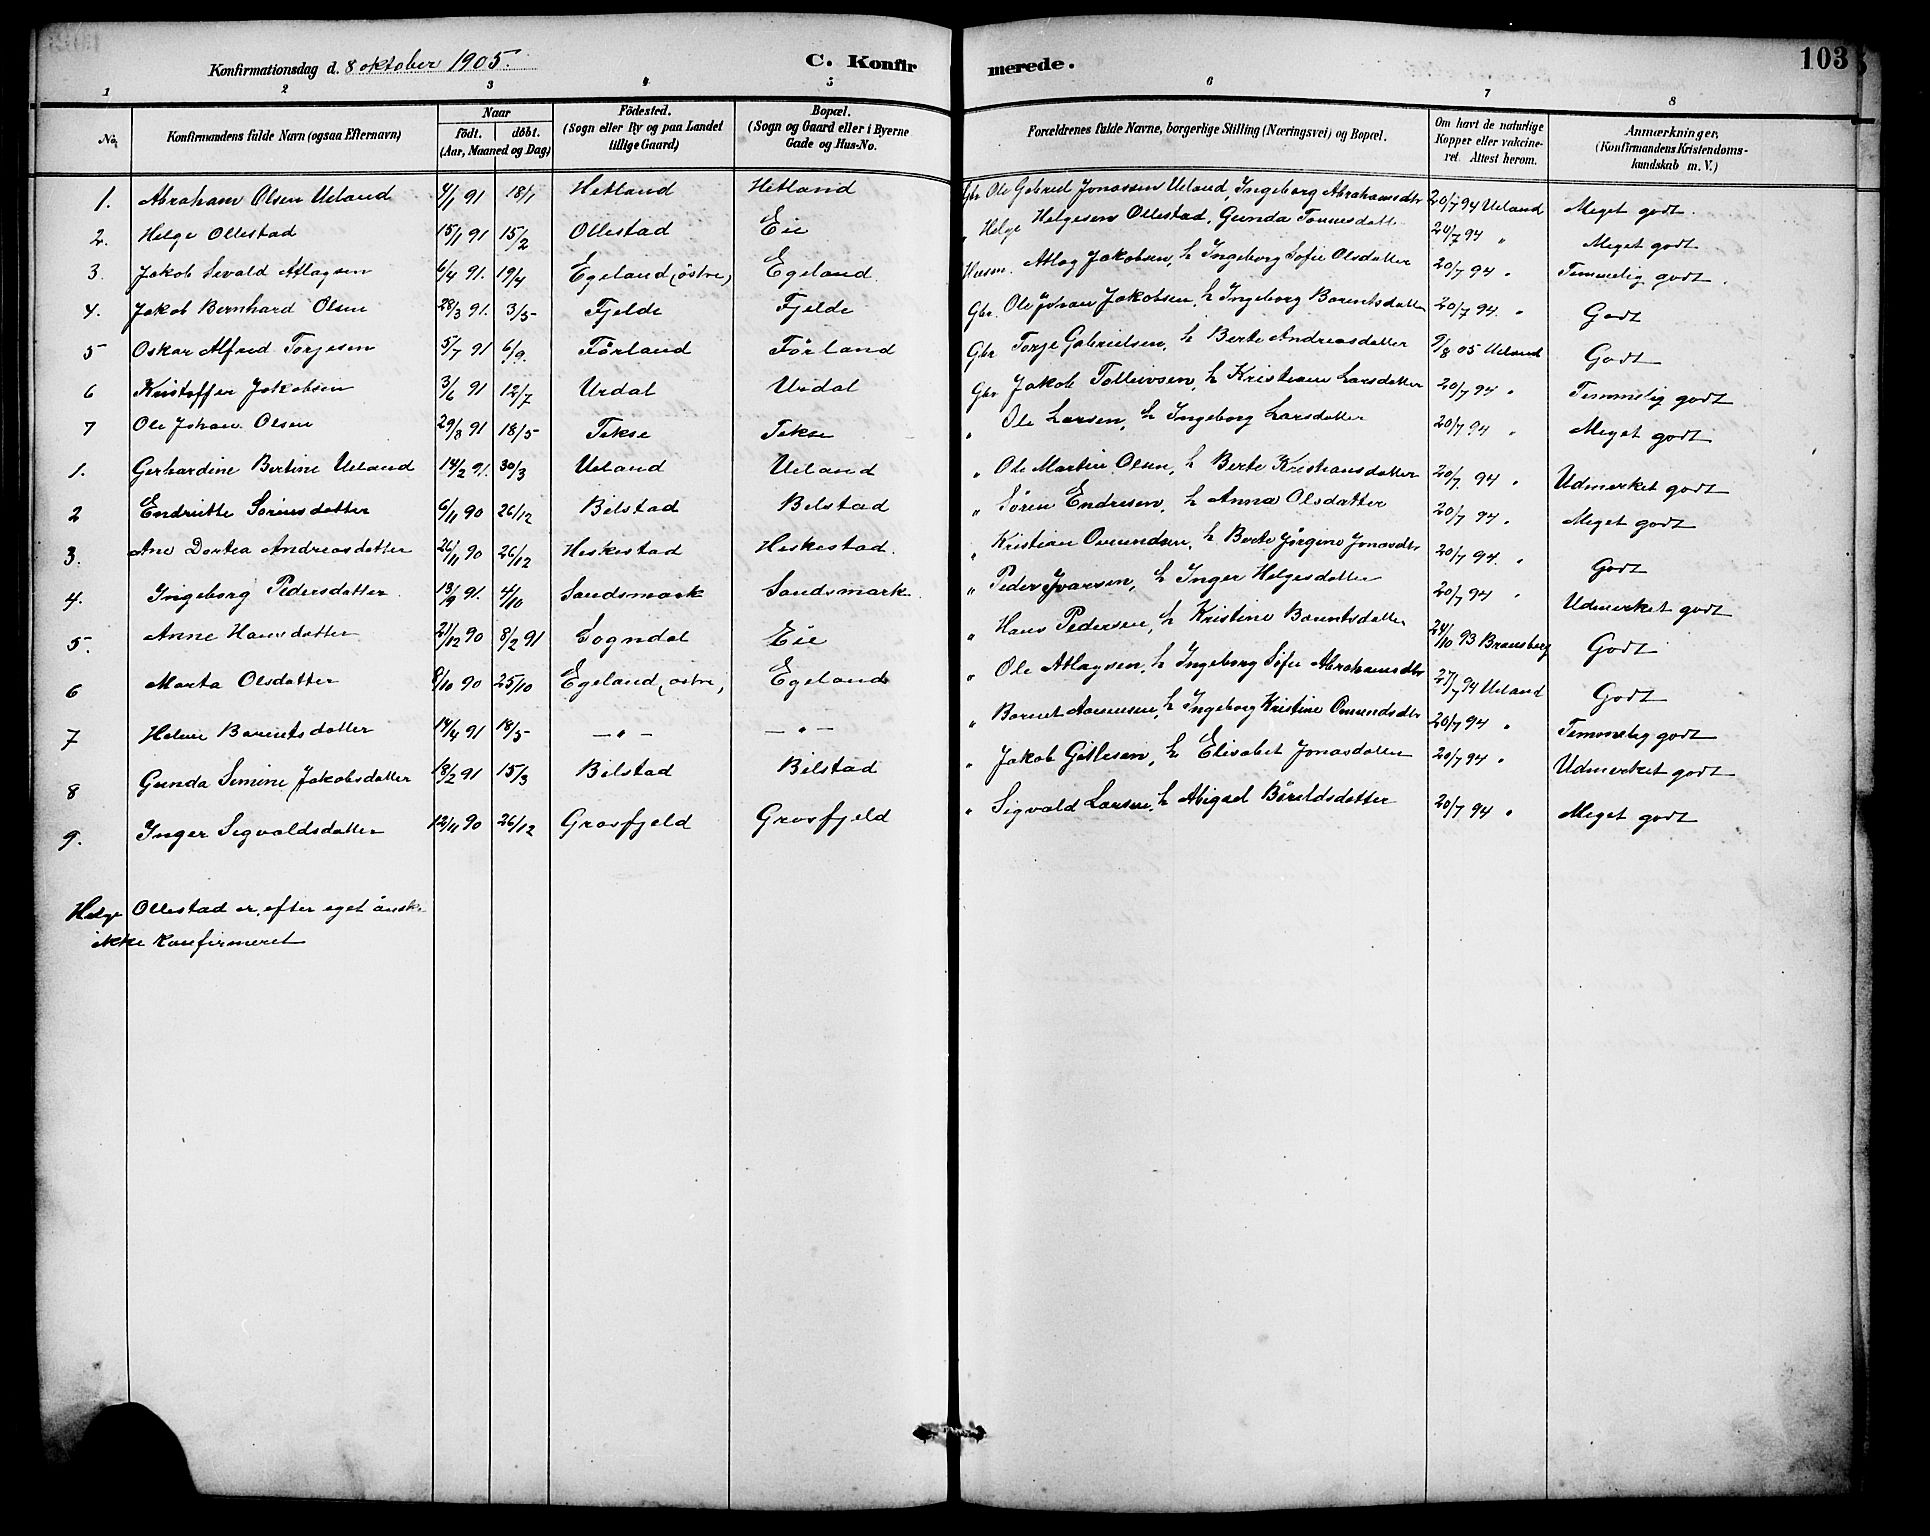 Konfirmationsdag d. 8 oktober 1905. C. Konfir merede. 103
1 2 3 4 5 6 7 8
No. Konfirmandens fulde Navn (ogsaa Efternavn) Naar født. døbt. (Aar, Maaned og Dag) Fødested. (Sogn eller By og paa Landet tillige Gaard) Bopæl. (Sogn og Gaard eller i Byerne Gade og Hus-No. Forældrenes fulde Navne, borgerlige Stilling (Næringsvei) og Bopæl. Om havt de naturlige Kopper eller vakcineret. Attest herom. Anmærkninger. (Konfirmandens Kristendomskundskab m. V.)
1. Abraham Olsen Ueland 4/1 91 18/1 Hetland Hetland Gbr Ole Gabriel Jonassen Ueland, Ingeborg Abrahamsdtr 20/7 94 Ueland Meget godt.
2. Helge Ollestad 15/1 91 15/2 Ollestad Eie " Helge Helgesen Ollestad, Gunda Tonnesdatt 20/7 94 " Meget godt
3. Jakob Sevald Atlagsen 6/4 91. 19/4 Egeland (østre) Egeland. Husm. Atlag Jakobsen, h Ingeborg Sofie Olsdatter 20/7 94 " Temmelig godt.
4. Jakob Bernhard Olsen 28/3 91. 3/5 Fjelde Fjelde Gbr. Ole Johan Jakobsen, h Ingeborg Barentsdatter 20/7 94. " Godt
5 Oskar Alfred Torjesen 5/7 91 6/9. Førland Førland Gbr Torje Gabrielsen, h Berte Andreasdatter 9/8 05 Ueland Godt
6 Kristoffer Jakobsen 3/6 91 12/7 Urdal Urdal Gbr Jakob Tollevsen, h Kristiane Larsdatter 20/7 94 " Temmelig godt
7 Ole Johan Olsen 29/3 91 18/5 Tekse Tekse " Ole Larsen, h Ingeborg Larsdatter 20/7 94 " Meget godt
1. Gerhardine Bertine Ueland 14/2 91. 30/3 Ueland Ueland " Ole Martin Olsen, h Berte Kristiansdatter 20/7 94 " Udmerket godt
2 Endrikke Sørensdatter 6/11 90 26/12 Bilstad Bilstad " Søren Endresen, h Anna Olsdatter 20/7 94 " Meget godt
3. Ane Dortea Andreasdatter 26/11 90 26/12 Heskestad Heskestad. " Kristian Omundsen, h Berte Jørgine Jonasdtr 20/7 94. " Godt
4. Ingeborg Pedersdatter. 13/9 91. 4/10 Sandsmark Sandsmark. " Peder Ivarsen, h Inger Helgesdatter 20/7 94 " Udmerket godt
5. Anne Hansdatter 21/12 90 8/2 91 Sogndal Eie " Hans Pedersen, h Kristine Barentsdatter 24/10 93 Godt
6 Marta Olsdatter 9/10 90 25/10 Egeland, østre, Egeland " Ole Atlagsen, h Ingeborg Sofie Abrahamsdtr 27/7 94 Ueland Godt
7 Helene Barentsdatter 14/4 91 18/5 — " — — " — " Barnet Aanensen, h Ingeborg Kristine Omundsdtr 20/7 94 " Temmelig godt
8 Gunda Simine Jakobsdatter 18/2 91 15/3 Bilstad Bilstad " Jakob Gitlesen, h Elisabet Jonasdatter 20/7 94 " Udmerket godt
9. Inger Sigvaldsdatter 12/11 90 26/12 Grosfjeld Grosfjeld " Sigvald Larsen, h Abigael Børildsdatter 20/7 94 " Meget godt
Helge Ollestad er, efter eget ønske
ikke konfirmeret